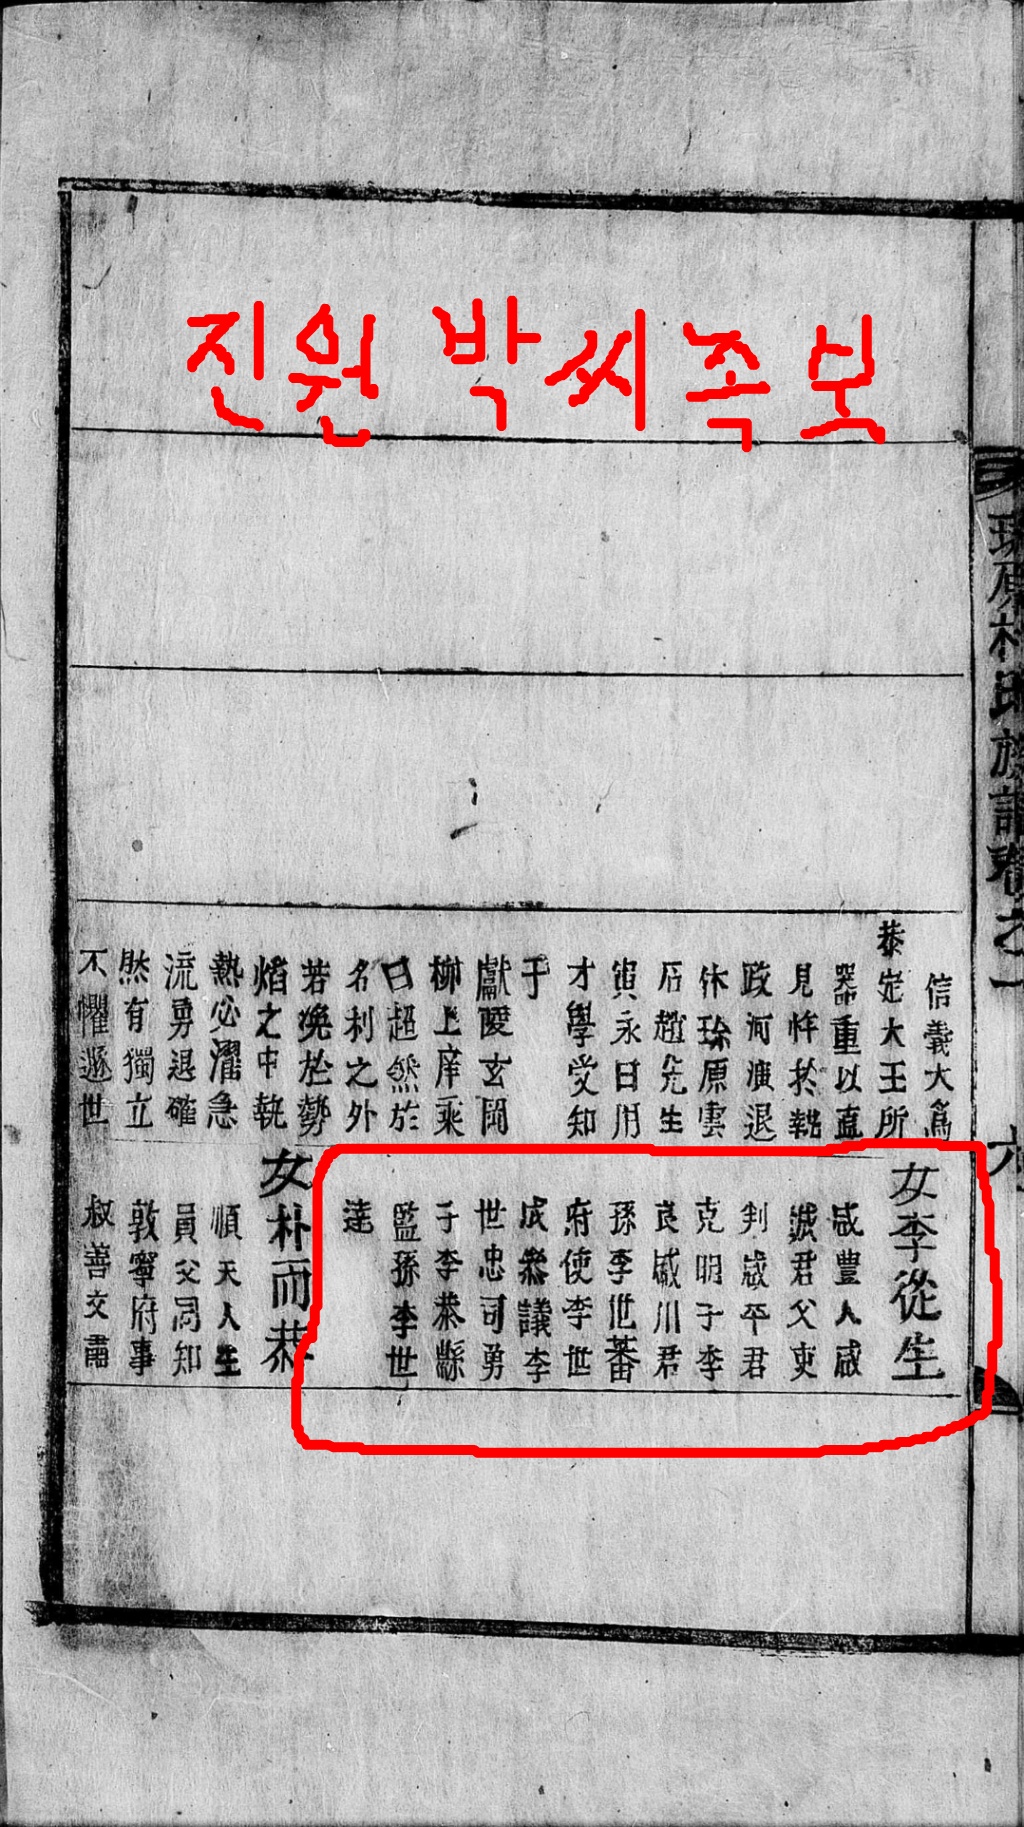 진원 박씨족보
信義大爲
恭定大王所
器重以直
見忤於執
政河演退
休珍原雲
石趙先生
寅永曰用
才學受知
于
獻陵玄圃
柳上庠秉
曰超然於
名利之外
若浼於勢
焰之中執
熱必濯急
流勇退確
然有獨立
不懼遯世
女李從生
咸豊人咸
城君父吏
判咸平君
克明子李
良咸川君
孫李世蕃
府使李世
成參議李
世忠司勇
子李恭縣
監孫李世
達
女朴而恭
順天人生
員父昺知
敦寧府事
叔善文肅
珍原朴氏族譜卷之一
六